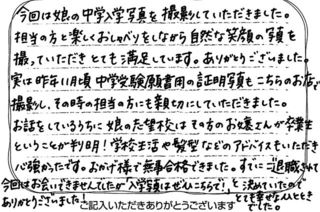 今回は娘の中学入学写真を撮影していただきました。
担当の方と楽しくおしゃべりをしながら自然な笑顔の写真を
撮っていただきとても満足しています。ありがとうございました。
実は昨年11月頃中学受験願書用の証明写真もこちらのお店で
撮影し、その時の担当の方にも親切にしていただきました。
お話をしているうちに娘の志望校はその方のお嬢さんが卒業生
ということが判明！学校生活や髪型などのアドバイスもいただき
心強かったです。おかげ様で無事合格できました。すでに退職されて
今回はお会いできませんでしたが「入学写真はぜひこちらで！」と決めていたので
ありがとうございました。とても幸せなひとときでした。
ご記入いただきありがとうございます